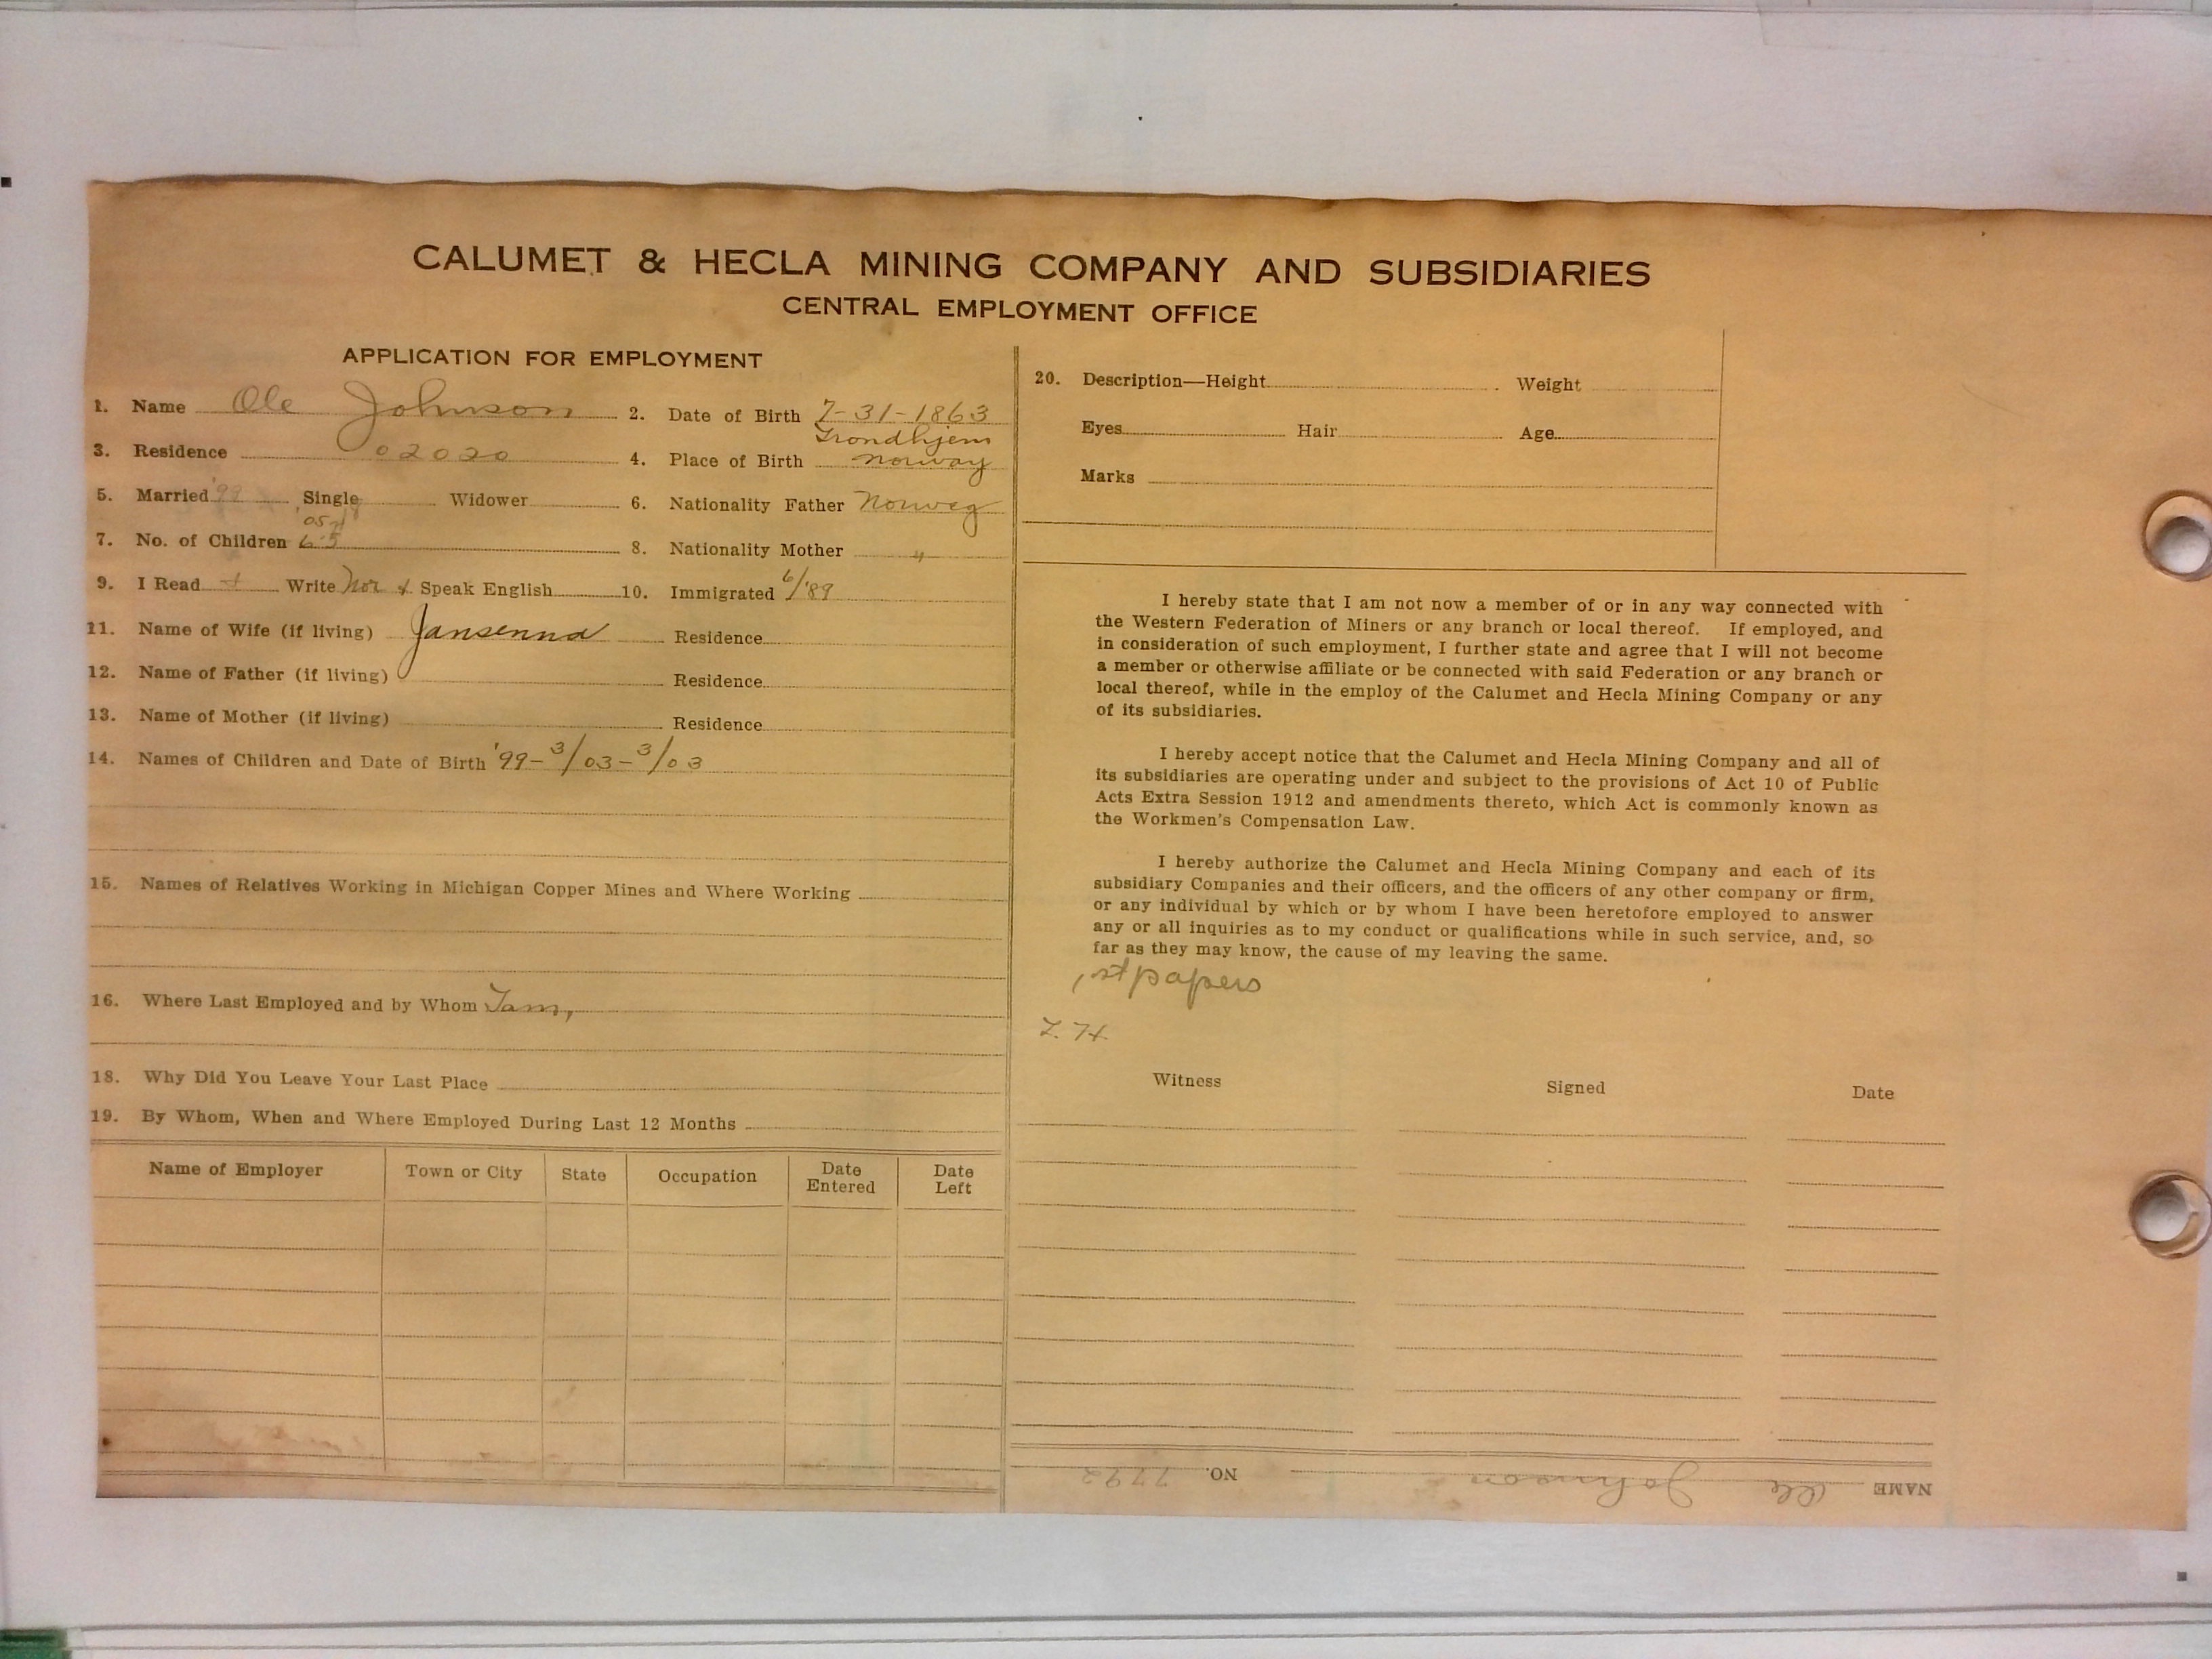 CALUMET & HECLA MINING COMPANY AND SUBSIDIARIES
CENTRAL EMPLOYMENT OFFICE
APPLICATION FOR EMPLOYMENT
1. Name Ole Johnson 2. Date of Birth 7-31-1863
Trondhjem
3. Residence 02020 4. Place of Birth Norway
5. Married '99 Single Widower 6. Nationality Father Norweg
7. No. of Children 8. Nationality Mother "
9. I Read + Write Nor + Speak English 10. Immigrated 6/'89
11. Name of Wife (if living) Jansenna Residence
12. Name of Father (if living) Residence
13. Name of Mother (if living) Residence
14. Names of Children and Date of Birth '99-3/03-3/03
15. Names of Relatives Working in Michigan Copper Mines and Where Working
16. Where Last Employed and by Whom Tam,
18. Why Did You Leave Your Last Place
19. By Whom, When and Where Employed During Last 12 Months
Name of Employer Town or City State Occupation Date Entered Date Left
20. Description—Height Weight
Eyes Hair Age
Marks
I hereby state that I am not now a member of or in any way connected with
the Western Federation of Miners or any branch or local thereof. If employed, and
in consideration of such employment, I further state and agree that I will not become
a member or otherwise affiliate or be connected with said Federation or any branch or
local thereof, while in the employ of the Calumet and Hecla Mining Company or any
of its subsidiaries.
I hereby accept notice that the Calumet and Hecla Mining Company and all of
its subsidiaries are operating under and subject to the provisions of Act 10 of Public
Acts Extra Session 1912 and amendments thereto, which Act is commonly known as
the Workmen's Compensation Law.
I hereby authorize the Calumet and Hecla Mining Company and each of its
subsidiary Companies and their officers, and the officers of any other company or firm,
or any individual by which or by whom I have been heretofore employed to answer
any or all inquiries as to my conduct or qualifications while in such service, and, so
far as they may know, the cause of my leaving the same.
1st papers
Witness Signed Date
NAME Ole Johnson NO. 7792